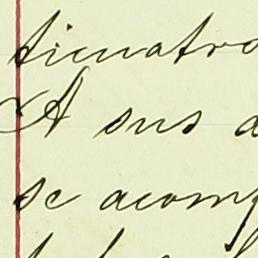 ticuatro
A sus a
se acomp